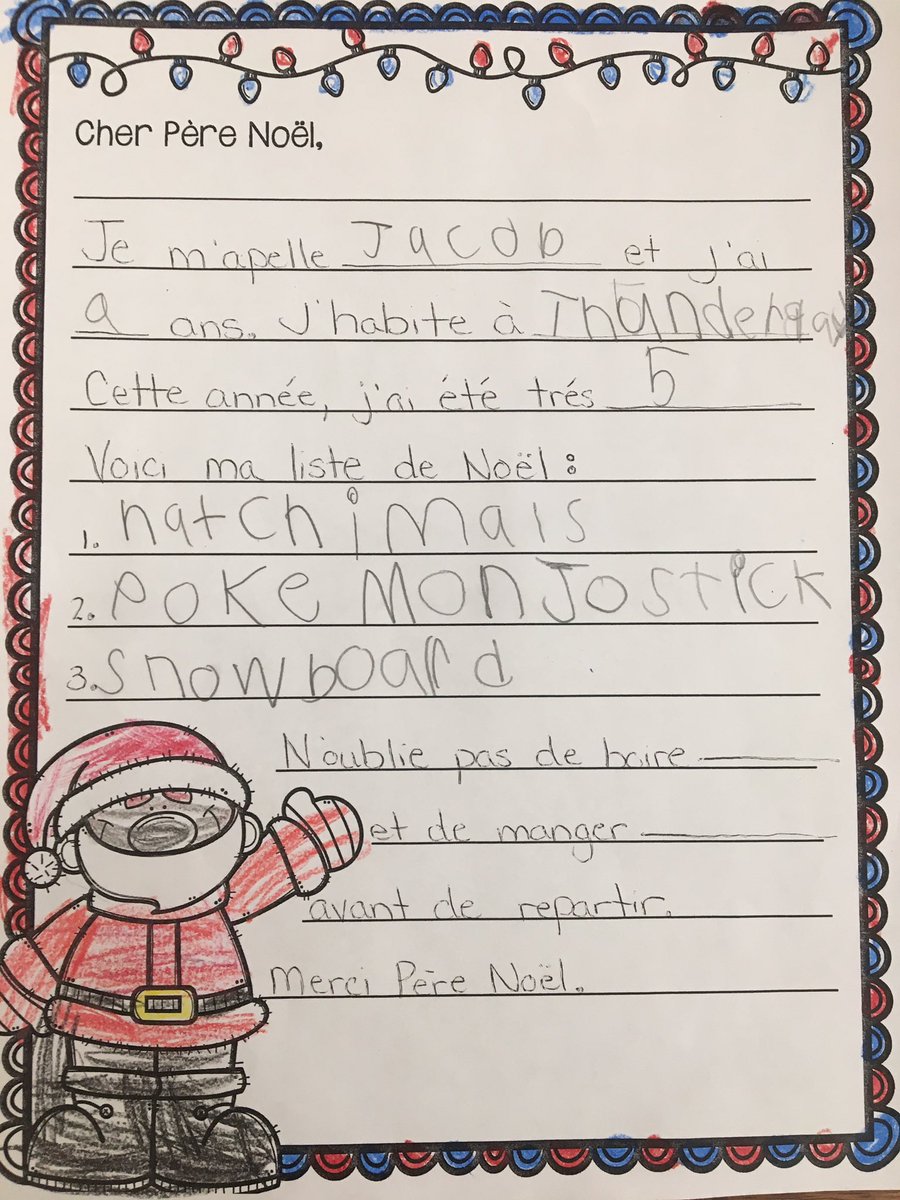 Cher Père Noël,
Je m'apelle Jacob et j'ai
a ans. J'habite à Thunder
Cette année, j'ai été trés 5
Voici ma liste de Noël :
1. hatchimals
2. pokemon Jostick
3. snowboard
N'oublie pas de boire
et de manger
avant de repartir.
Merci Père Noël.